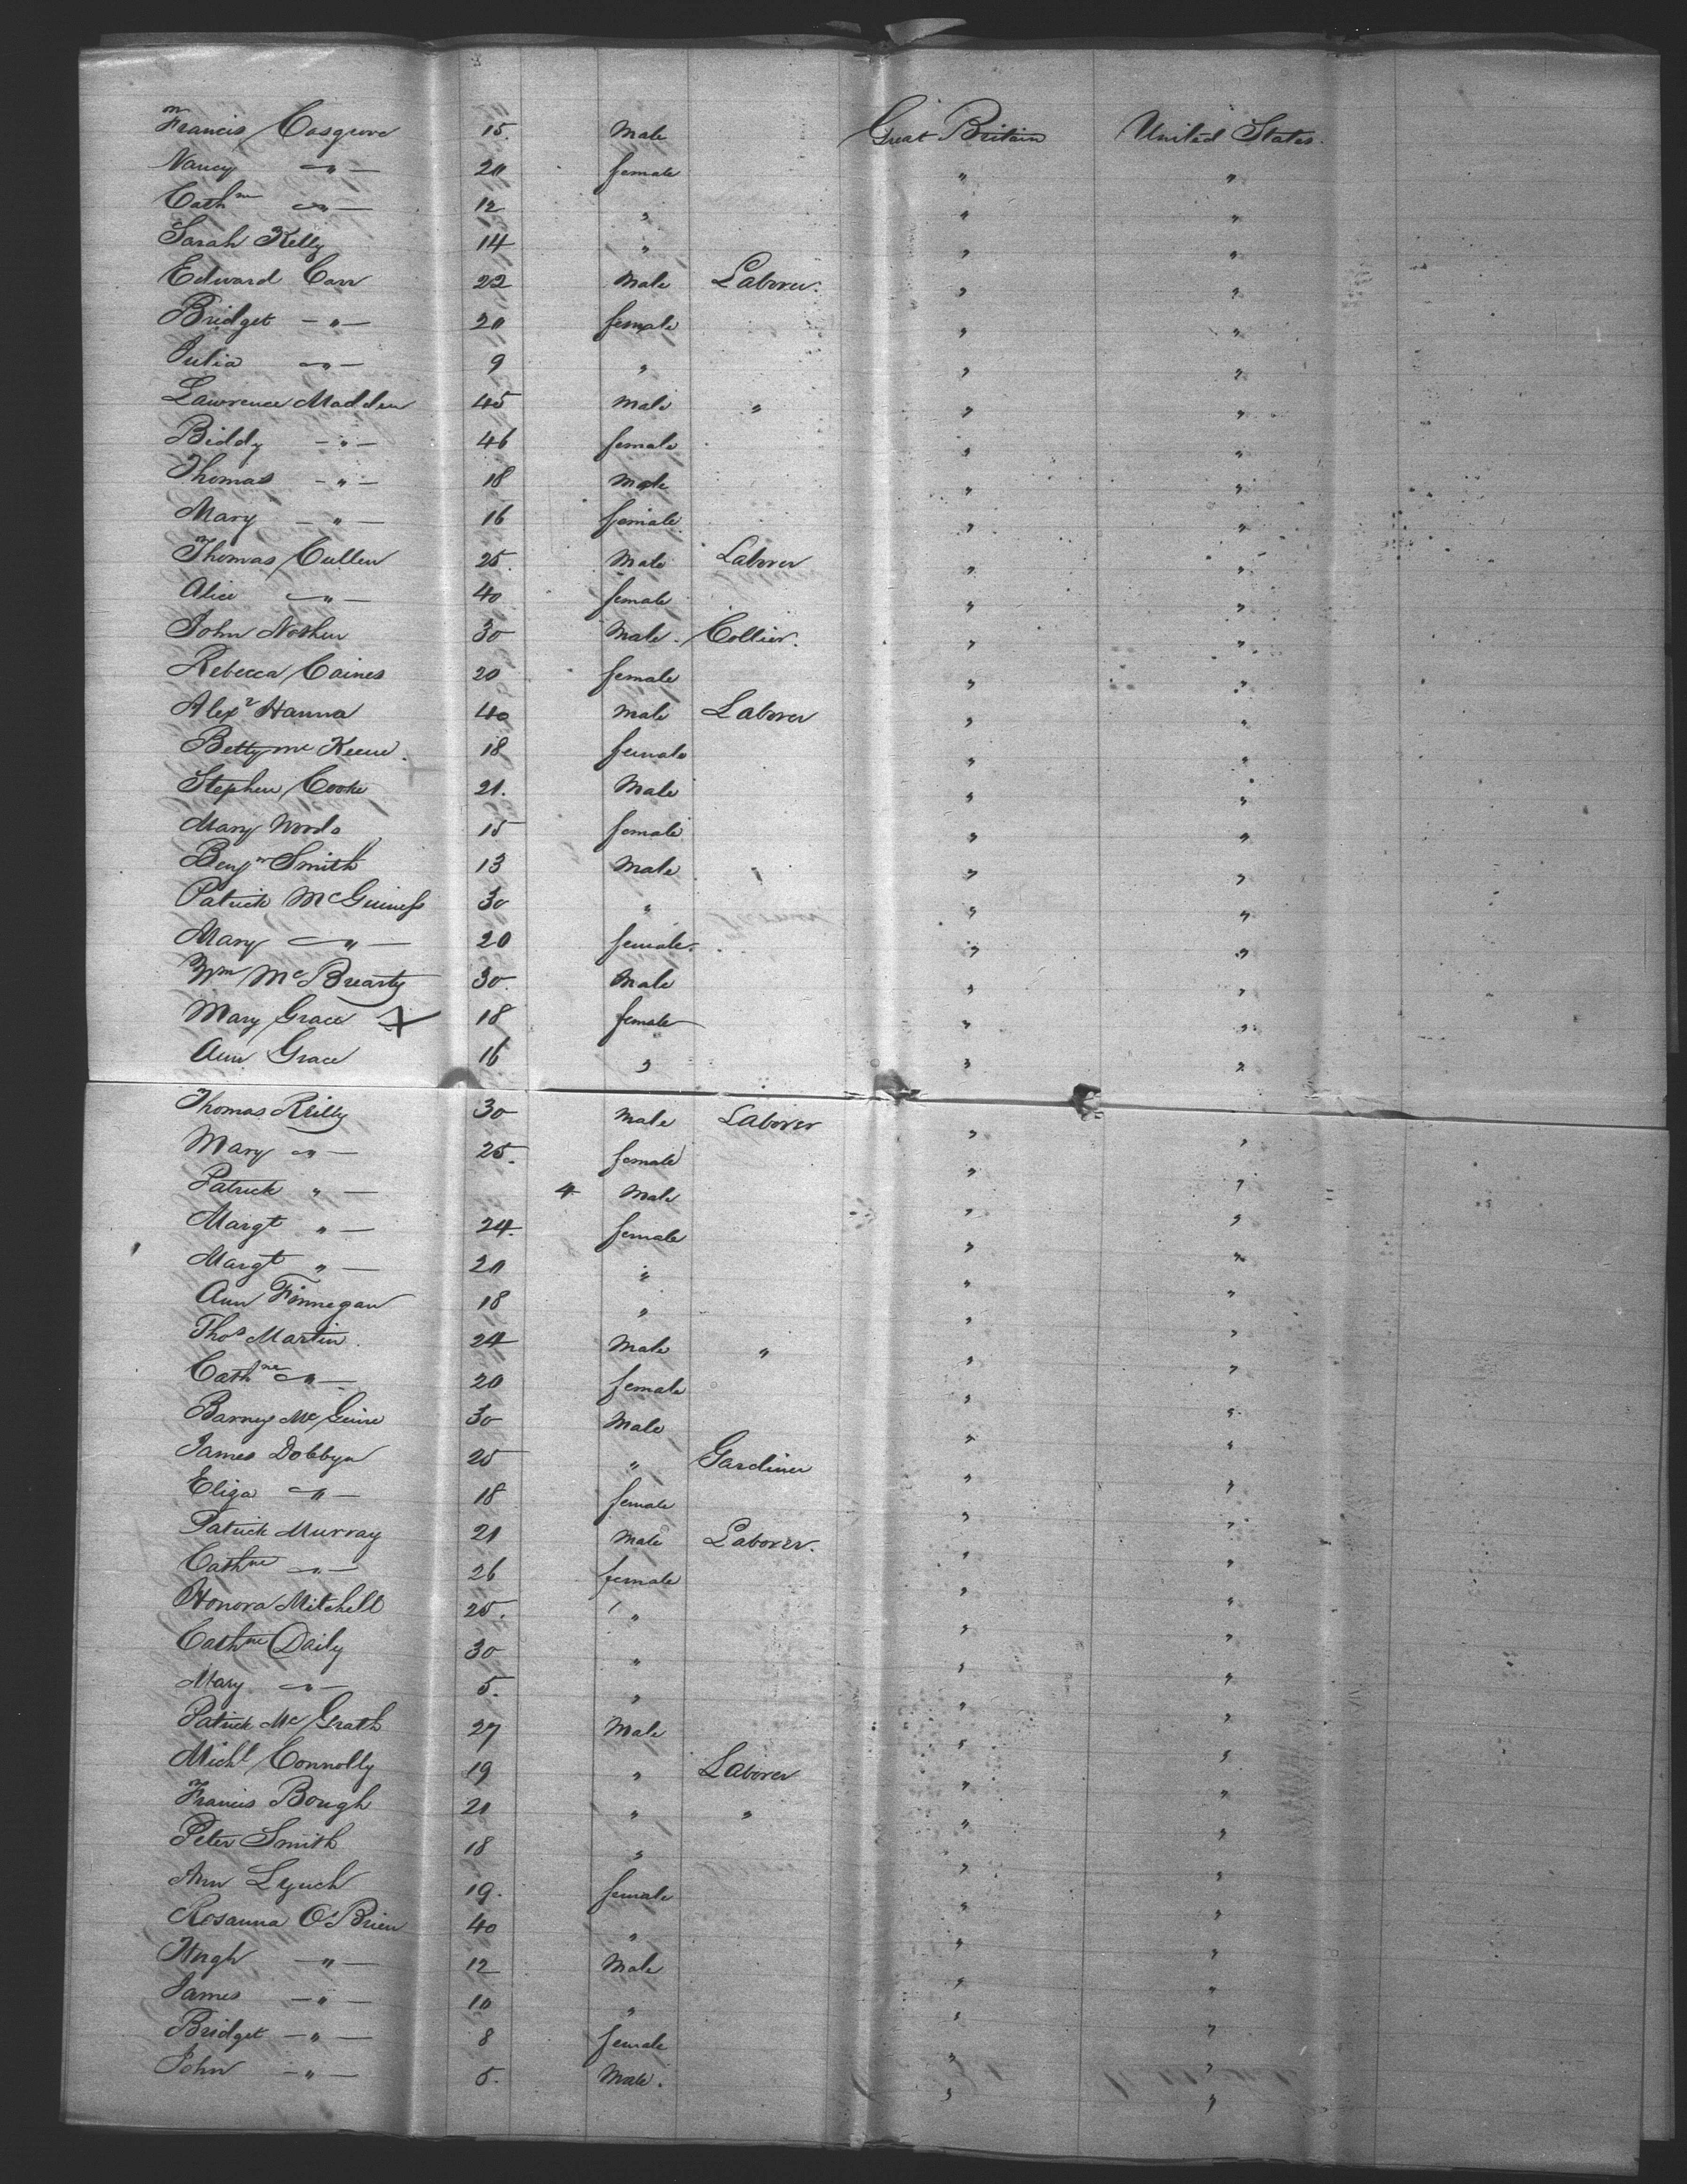 Francis Cosgrove 15. Male Great Britain United States.
Nancy —"— 20 female " "
Cathne —"— 12 " " "
Sarah Kelly 14 " " "
Edward Carr 22 Male Laborer. " "
Bridget —"— 20 female " "
Julia —"— 9 " " "
Lawrence Madden 45 Male " " "
Biddy —"— 46 female " "
Thomas —"— 18 Male " "
Mary —"— 16 female " "
Thomas Cullen 25. Male Laborer " "
Alice —"— 40 female " "
John 30 Male Collier. " "
Rebecca Caines 20 female " "
Alexr Hanna 40 Male Laborer " "
Betty Mc Keene. 18 female " "
Stephen Cooke 21. Male " "
Mary Woods 15 female " "
Benjn Smith 13 Male " "
Patrick McGuiness 30 " " "
Mary —"— 20 female. " "
Wm McBrearty 30. Male " "
Mary Grace X 18 female " "
Ann Grace 16 " " "
Thomas Reilly 30 Male Laborer " "
Mary —"— 25. female " "
Patrick " — 4 Male " "
Margt " — 24. female " "
Margt " — 20 " " "
Ann Finnegan 18 " " "
Thos Martin. 24 Male " " "
Cathne —"— 20 female " "
Barney Mc Guire 30 Male " "
James Dobbyn 25 " Gardiner " "
Eliza —"— 18 female " "
Patrick Murray 21 Male Laborer. " "
Cathne —"— 26 female " "
Honora Mitchell 25. " " "
Cathne Daily 30 " " "
Mary —"— 5. " " "
Patrick Mc Grath 27 Male " "
Michl Connolly 19 " Laborer " "
Francis Bough 21 " " " "
Peter Smith 18 " " "
Ann Lynch 19. female " "
Rosanna O'Brien 40 " " "
Hugh —"— 12 Male " "
James —"— 10 " " "
Bridget —"— 8 female " "
John —"— 5. Male. " "